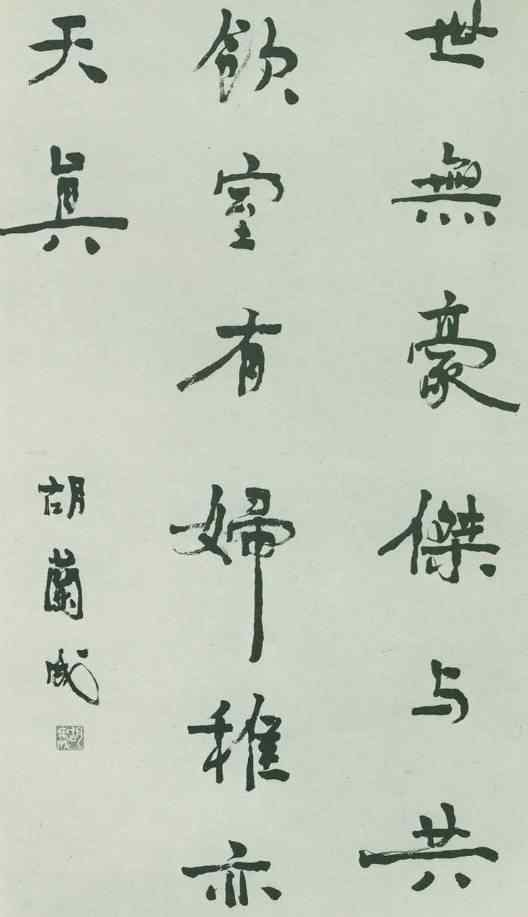 世無豪傑与共
飲室有婦稚亦
天真
胡蘭成